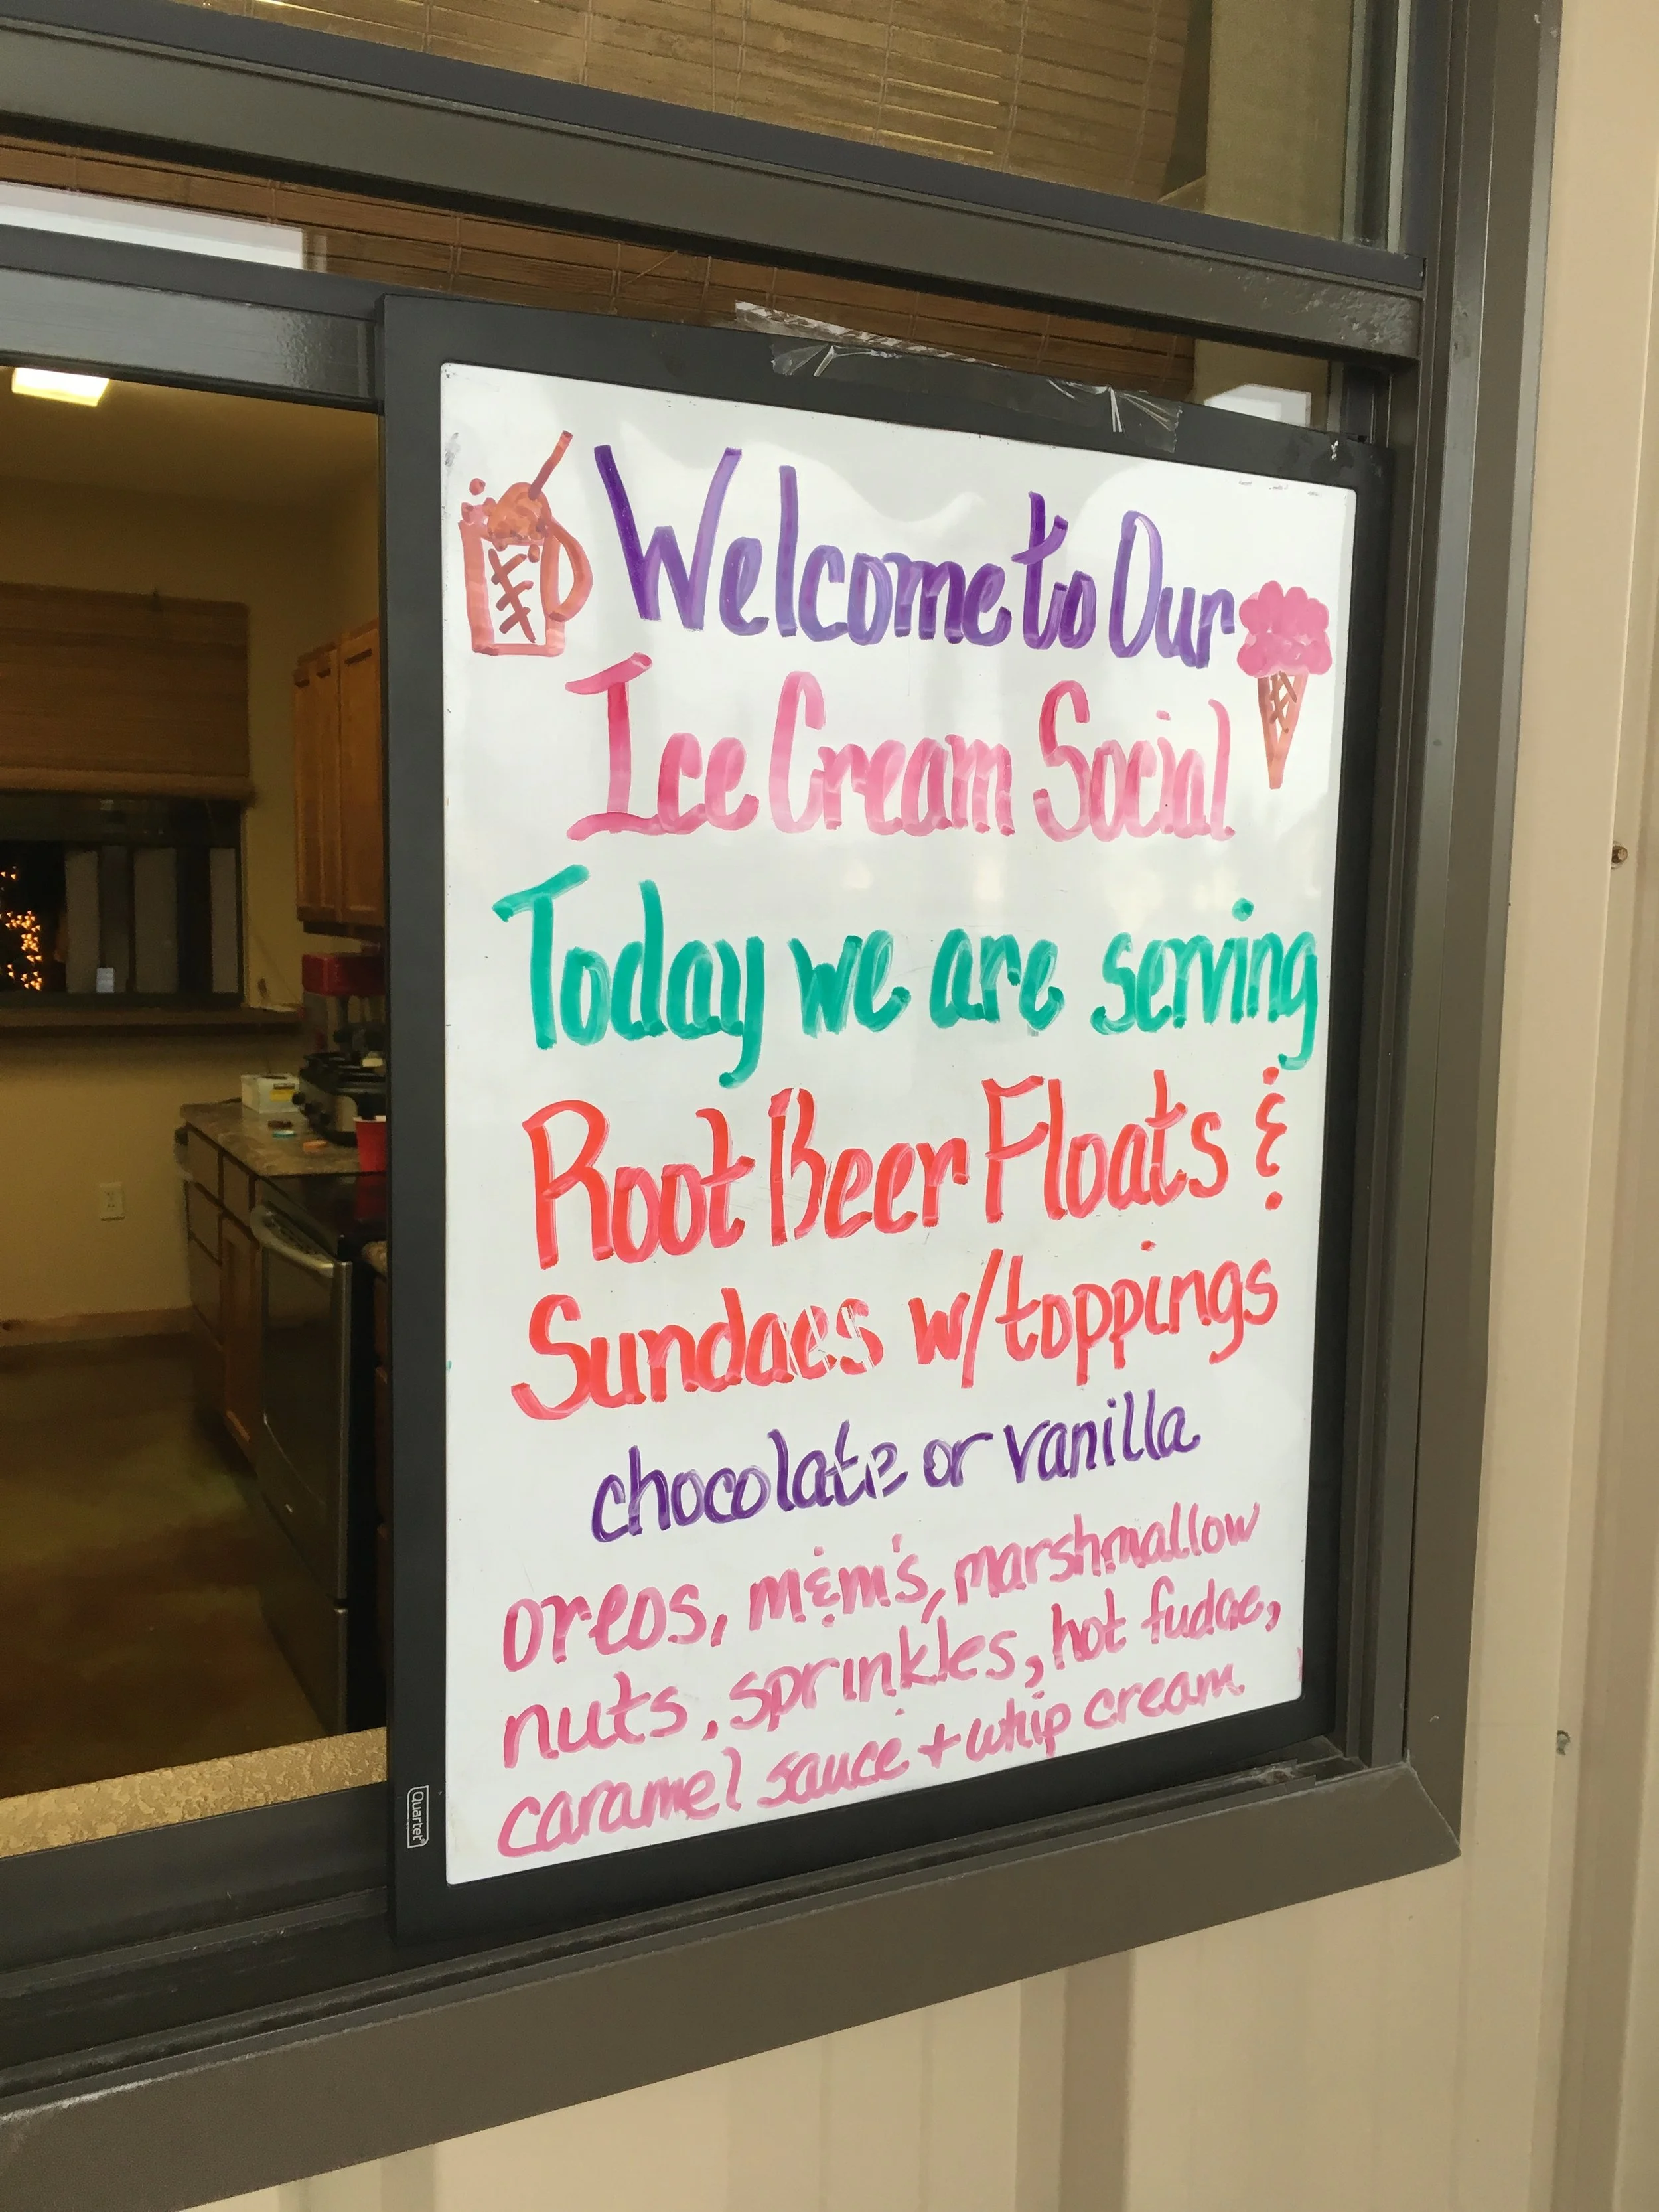 Welcome to Our
Ice Cream Social
Today we are serving
Root Beer Floats &
Sundaes w/toppings
chocolate or vanilla
oreos, m&m's, marshmallow
nuts, sprinkles, hot fudge,
caramel sauce + whip cream
Quartet